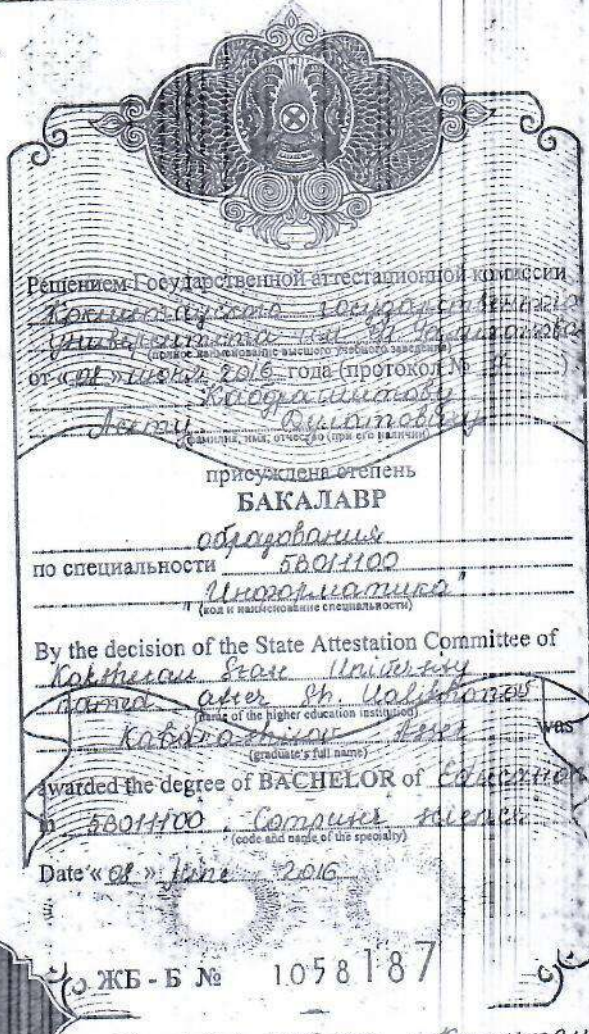 Решением Государственной аттестационной комиссии
Кокшетауского государственного
университета им Ш Уалиханова
(полное наименование высшего учебного заведения)
от «08» июня 2016 года (протокол №)
Асету Булатовичу
(фамилия, имя, отчество (при его наличии)
присуждена степень
БАКАЛАВР
образования
по специальности 5В011100
"Информатика"
(код и наименование специальности)
By the decision of the State Attestation Committee of
Kokshetau State University
named after Sh. Ualikhanov
(name of the higher education institution)
Asset was
(graduate's full name)
awarded the degree of BACHELOR of Education
in 5B011100 Computer science
(code and name of the specialty)
Date «08» June 2016
ЖБ - Б № 1058187